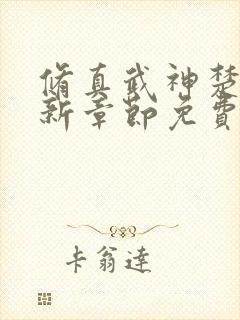 脩真武神楚
新章節免費
卡翁達